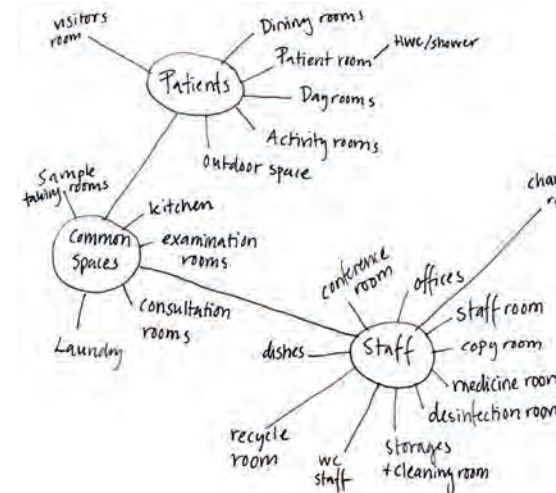 visitors
room
Dining rooms
Patient room
HWC/shower
Patients
Dayrooms
Activity rooms
outdoor space
Sample
taking rooms
kitchen
Common
Spaces
examination
rooms
consultation
rooms
Laundry
conference
room
offices
staff room
dishes
Staff
copy room
medicine room
desinfection room
recycle
room
wc
staff
storages
+cleaning room